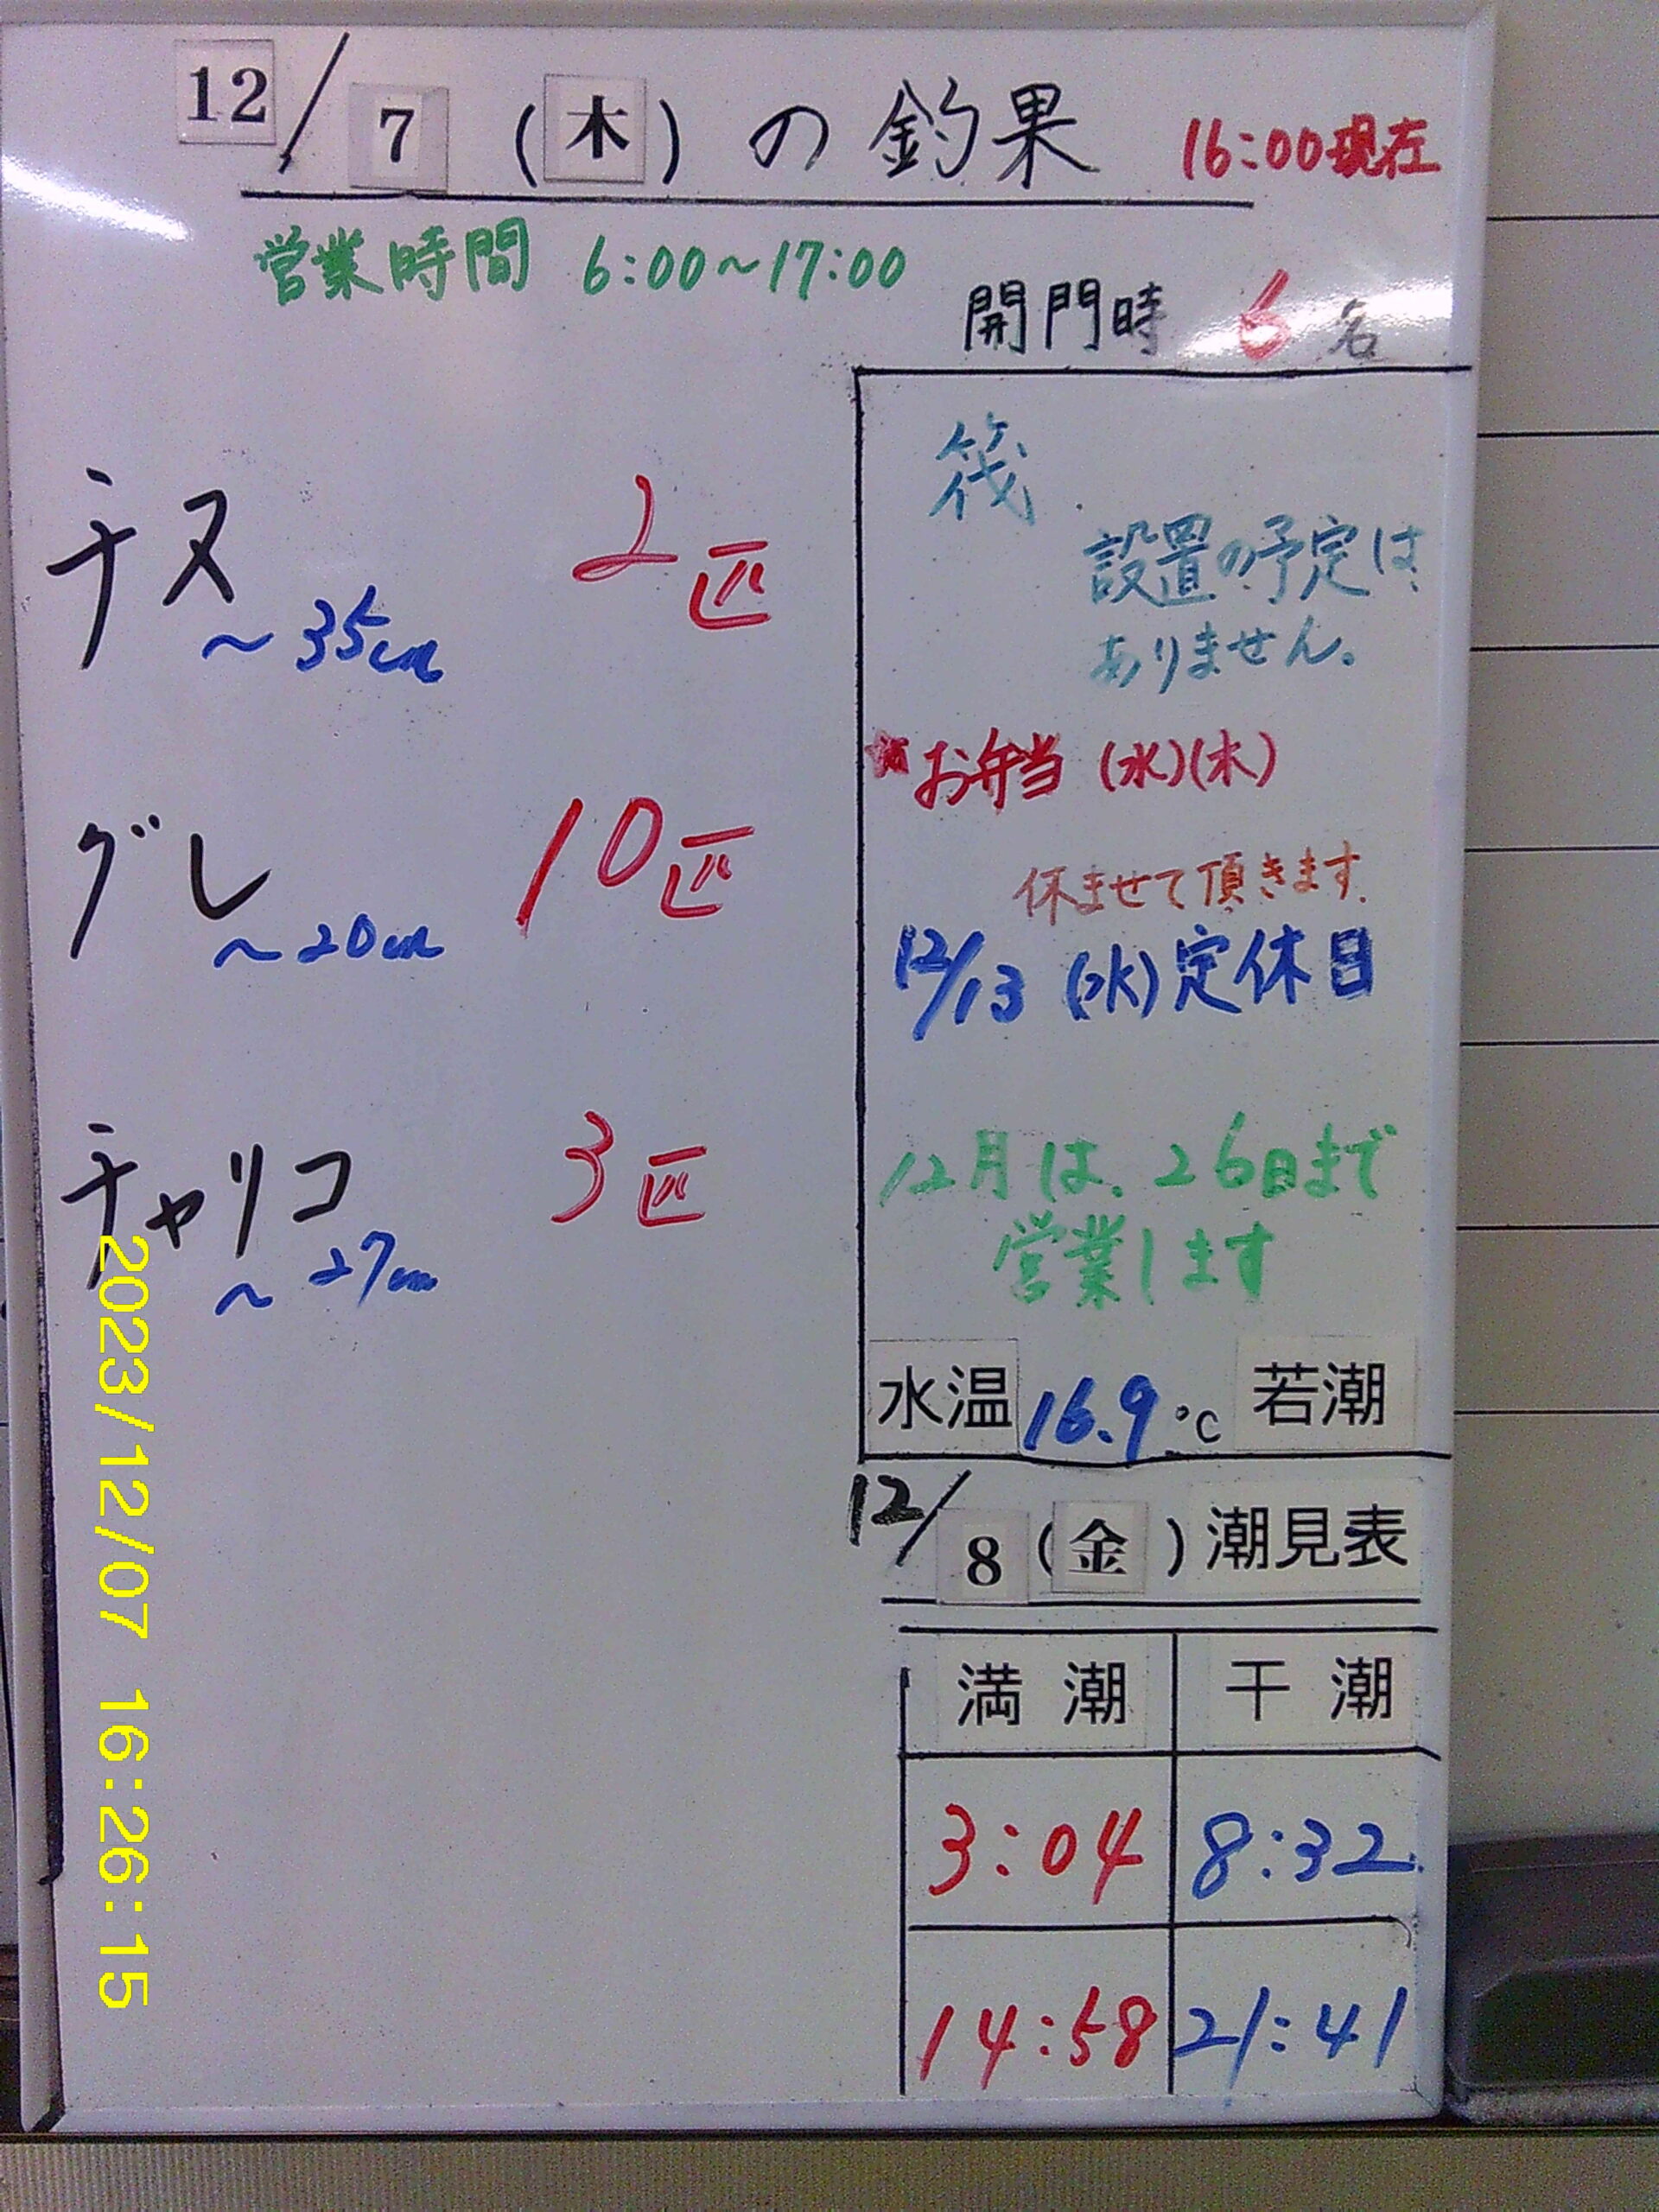 12/7(木)の釣果 16:00現在
営業時間 6:00~17:00
開門時 6名
チヌ 2匹
~35cm
グレ 10匹
~20cm
チャリコ 3匹
~27cm
筏
設置の予定は
ありません。
★お弁当(水)(木)
休ませて頂きます.
12/13(水)定休日
12月は、26日まで
営業します
水温 16.9℃ 若潮
12/8(金)潮見表
満潮 干潮
3:04 8:32
14:58 21:41
2023/12/07 16:26:15